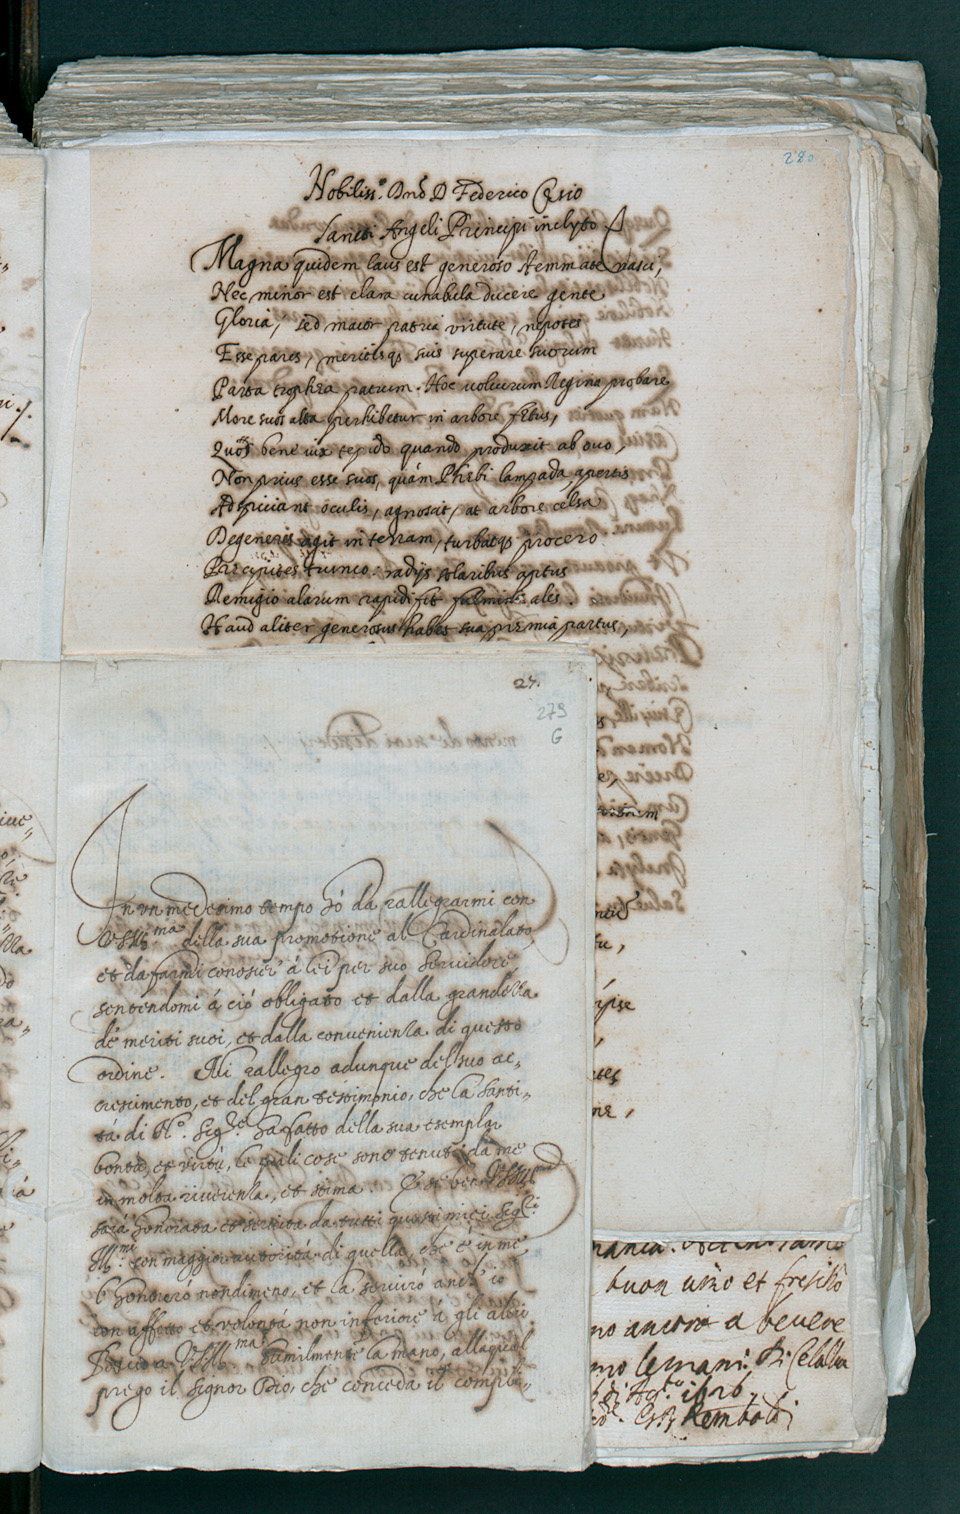 280
Nobiliss.º Dnô D Federico Cesio
Sancti Angeli Principi inclyto
Magna quidem laus est generoso stemmate nasci,
Nec minor est clara cunabula ducere gente
Gloria, sed maior patria virtute, nepotes
Esse pares, meritisqȝ suis superare suorum
Parta trophæa patrum. Hoc volucrum Regina probare
More suos alta perhibetur in arbore fętus,
Quos bene vix tepido quando produxit ab ovo,
Non prius esse suos, quám Phębi lampada apertis
Adspiciant oculis, agnoscit, at arbore celsa
Degeneres agit in terram, turbatqȝ procero
Pręcipites trunco: radijs solaribus aptus
Remigio alarum rapidi fit fulminis ales.
Haud aliter generosus habes sua pręmia partus,
27.
279
G
In un medesimo tempo hò da rallegrarmi con
VSIll.ma della sua promotione al Cardinalato,
et da farmi conoscer' à lei per suo servidore
sentendomi á ció obligato et dalla grandezza
de' meriti suoi, et dalla convenienza di questo
ordine. Mi rallegro adunque del suo ac=
crescimento, et del gran testimonio, che la Santi=
tá di N.º Sig.re ha fatto della sua esemplar
bontà, et virtù, le quali cose sono tenute da me
in molta riverenza, et stima. E se ben VSIll.ma
sará honorata et servita da tutti questi miei Sig.ri
Ill.mi con maggior autoritá di quella, che è in me
l'honoreró nondimeno, et la serviró anch'io
con affetto et volontá non inferiore á gli altri
Bascio a VSIll.ma humilmente la mano, alla qual
prego il Signor Dio, che conceda il compi=
buon vino et fresche
no ancora a bevere
mo le mani. Di
1616
Remboldi